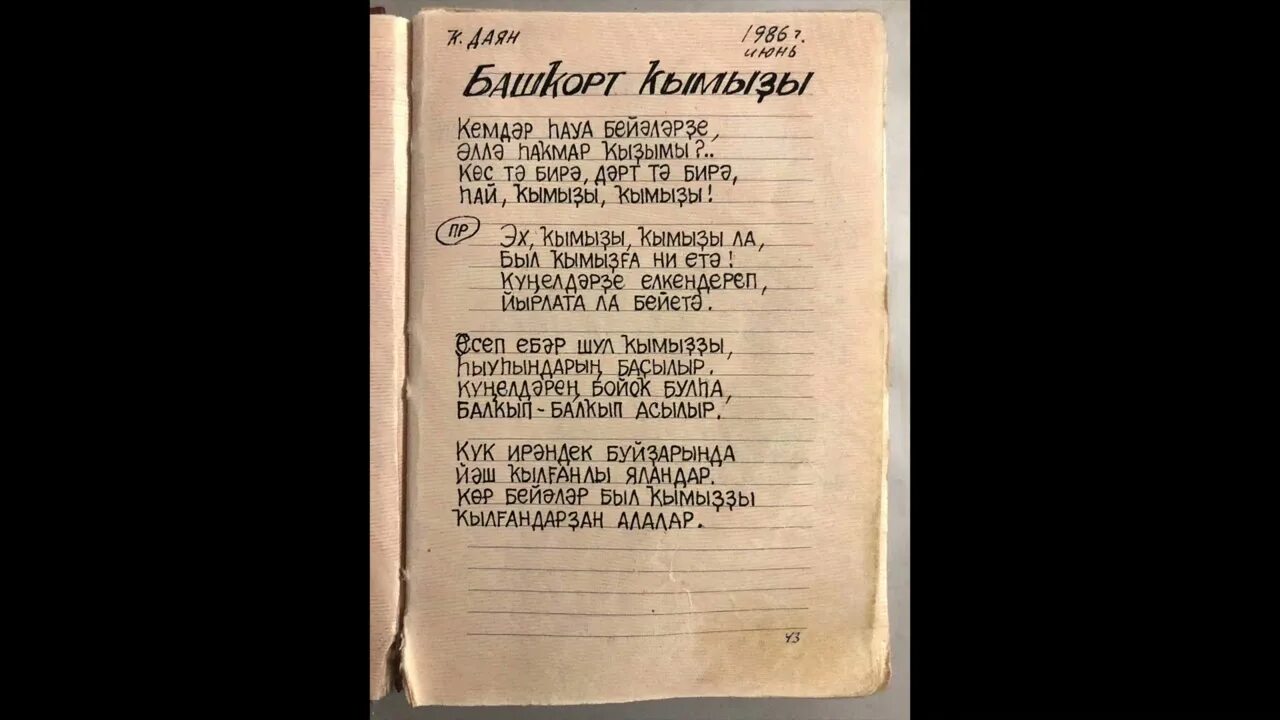 Ҡ. ДАЯН
1986 г.
июнь
БАШҠОРТ ҠЫМЫҘЫ
КЕМДӘР ҺАУА БЕЙӘЛӘРҘЕ,
ӘЛЛӘ ҺАҠМАР ҠЫҘЫМЫ?..
КӨС ТӘ БИРӘ, ДӘРТ ТӘ БИРӘ,
ҺАЙ, ҠЫМЫҘЫ, ҠЫМЫҘЫ!
ПР
ЭХ, ҠЫМЫҘЫ, ҠЫМЫҘЫ ЛА,
БЫЛ ҠЫМЫҘҒА НИ ЕТӘ!
КҮҢЕЛДӘРҘЕ ЕЛКЕНДЕРЕП,
ЙЫРЛАТА ЛА БЕЙЕТӘ.
ӘСЕП ЕБӘР ШУЛ ҠЫМЫҘҘЫ,
ҺЫУҺЫНДАРЫҢ БАҪЫЛЫР.
КҮҢЕЛДӘРЕҢ БОЙОҠ БУЛҺА,
БАЛҠЫП - БАЛҠЫП АСЫЛЫР.
КҮК ИРӘНДЕК БУЙҘАРЫНДА
ЙӘШ ҠЫЛҒАНЛЫ ЯЛАНДАР.
КӨР БЕЙӘЛӘР БЫЛ ҠЫМЫҘҘЫ
ҠЫЛҒАНДАРҘАН АЛАЛАР.
43